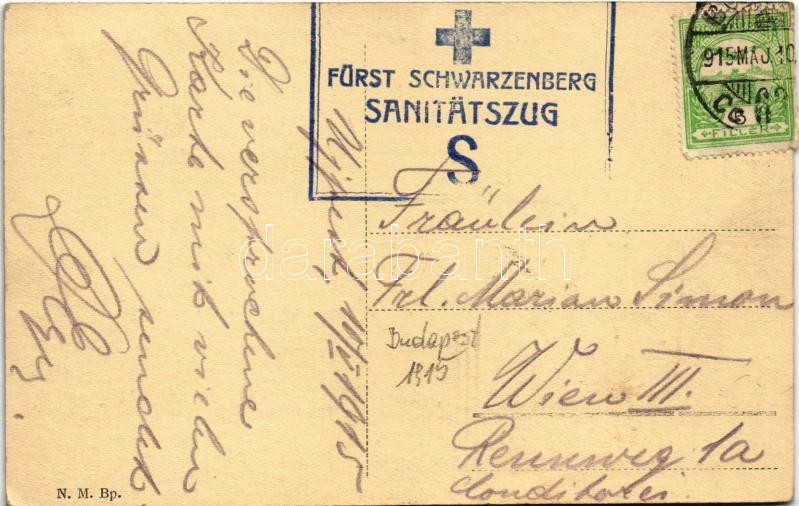 FÜRST SCHWARZENBERG
SANITÄTSZUG
S
915 MÁJ 10
6
FILLÉR
Újpest, 10/V 1915
Die versprochene
Karte mit vielen
Grüssen sendet
Fräulein
Frl. Marian Simon
Wien III.
Rennweg 1a
Conditorei
Budapest
1915
N. M. Bp.
darabanth